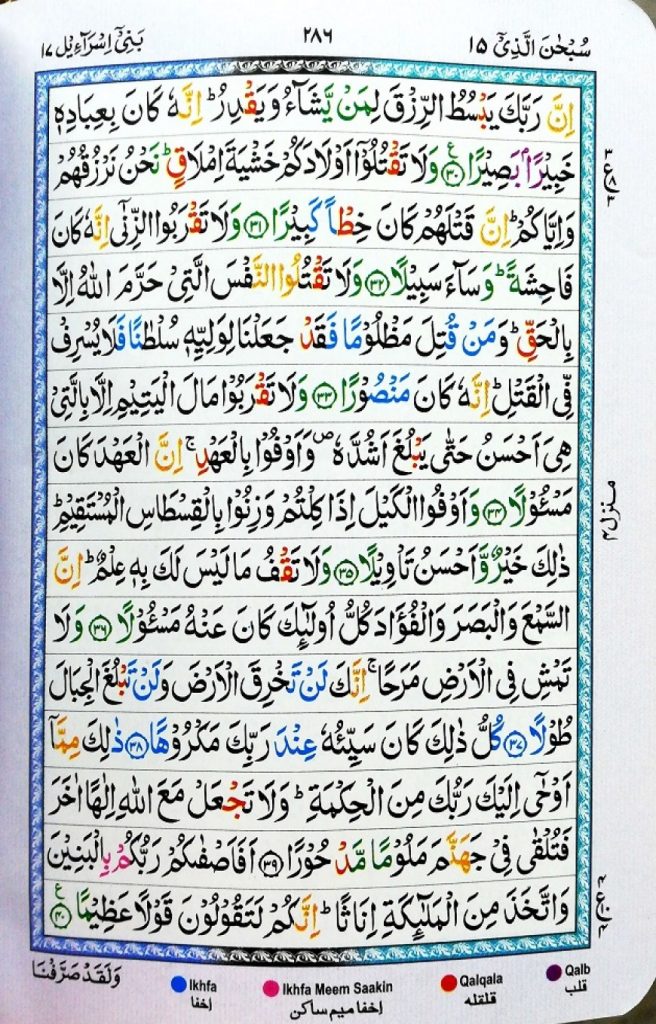 سُبْحٰنَ الَّذِیْۤ ١٥
٢٨٦
بَنِیْۤ اِسْرَآءِیْل ١٧
اِنَّ رَبَّكَ یَبْسُطُ الرِّزْقَ لِمَنْ یَّشَآءُ وَیَقْدِرُ ؕ اِنَّهٗ كَانَ بِعِبَادِهٖ
خَبِیْرًۢا بَصِیْرًا ﴿٣٠﴾ ع وَلَا تَقْتُلُوْۤا اَوْلَادَكُمْ خَشْیَةَ اِمْلَاقٍ ؕ نَحْنُ نَرْزُقُهُمْ
وَاِیَّاكُمْ ؕ اِنَّ قَتْلَهُمْ كَانَ خِطْاً كَبِیْرًا ﴿٣١﴾ وَلَا تَقْرَبُوا الزِّنٰۤی اِنَّهٗ كَانَ
فَاحِشَةً ؕ وَسَآءَ سَبِیْلًا ﴿٣٢﴾ وَلَا تَقْتُلُوا النَّفْسَ الَّتِیْ حَرَّمَ اللّٰهُ اِلَّا
بِالْحَقِّ ؕ وَمَنْ قُتِلَ مَظْلُوْمًا فَقَدْ جَعَلْنَا لِوَلِیِّهٖ سُلْطٰنًا فَلَا یُسْرِفْ
فِّی الْقَتْلِ ؕ اِنَّهٗ كَانَ مَنْصُوْرًا ﴿٣٣﴾ وَلَا تَقْرَبُوْا مَالَ الْیَتِیْمِ اِلَّا بِالَّتِیْ
هِیَ اَحْسَنُ حَتّٰی یَبْلُغَ اَشُدَّهٗ ۪ وَاَوْفُوْا بِالْعَهْدِ ۚ اِنَّ الْعَهْدَ كَانَ
مَسْـُٔوْلًا ﴿٣٤﴾ وَاَوْفُوا الْكَیْلَ اِذَا كِلْتُمْ وَزِنُوْا بِالْقِسْطَاسِ الْمُسْتَقِیْمِ ؕ
ذٰلِكَ خَیْرٌ وَّاَحْسَنُ تَاْوِیْلًا ﴿٣٥﴾ وَلَا تَقْفُ مَا لَیْسَ لَكَ بِهٖ عِلْمٌ ؕ اِنَّ
السَّمْعَ وَالْبَصَرَ وَالْفُؤَادَ كُلُّ اُولٰٓىِٕكَ كَانَ عَنْهُ مَسْـُٔوْلًا ﴿٣٦﴾ وَلَا
تَمْشِ فِی الْاَرْضِ مَرَحًا ۚ اِنَّكَ لَنْ تَخْرِقَ الْاَرْضَ وَلَنْ تَبْلُغَ الْجِبَالَ
طُوْلًا ﴿٣٧﴾ كُلُّ ذٰلِكَ كَانَ سَیِّئُهٗ عِنْدَ رَبِّكَ مَكْرُوْهًا ﴿٣٨﴾ ذٰلِكَ مِمَّاۤ
اَوْحٰۤی اِلَیْكَ رَبُّكَ مِنَ الْحِكْمَةِ ؕ وَلَا تَجْعَلْ مَعَ اللّٰهِ اِلٰهًا اٰخَرَ
فَتُلْقٰی فِیْ جَهَنَّمَ مَلُوْمًا مَّدْحُوْرًا ﴿٣٩﴾ اَفَاَصْفٰىكُمْ رَبُّكُمْ بِالْبَنِیْنَ
وَاتَّخَذَ مِنَ الْمَلٰٓىِٕكَةِ اِنَاثًا ؕ اِنَّكُمْ لَتَقُوْلُوْنَ قَوْلًا عَظِیْمًا ﴿٤٠﴾ ع
منزل ٤
وَلَقَدْ صَرَّفْنَا
Ikhfa
اخفا
Ikhfa Meem Saakin
اخفا میم ساکن
Qalqala
قلقلہ
Qalb
قلب